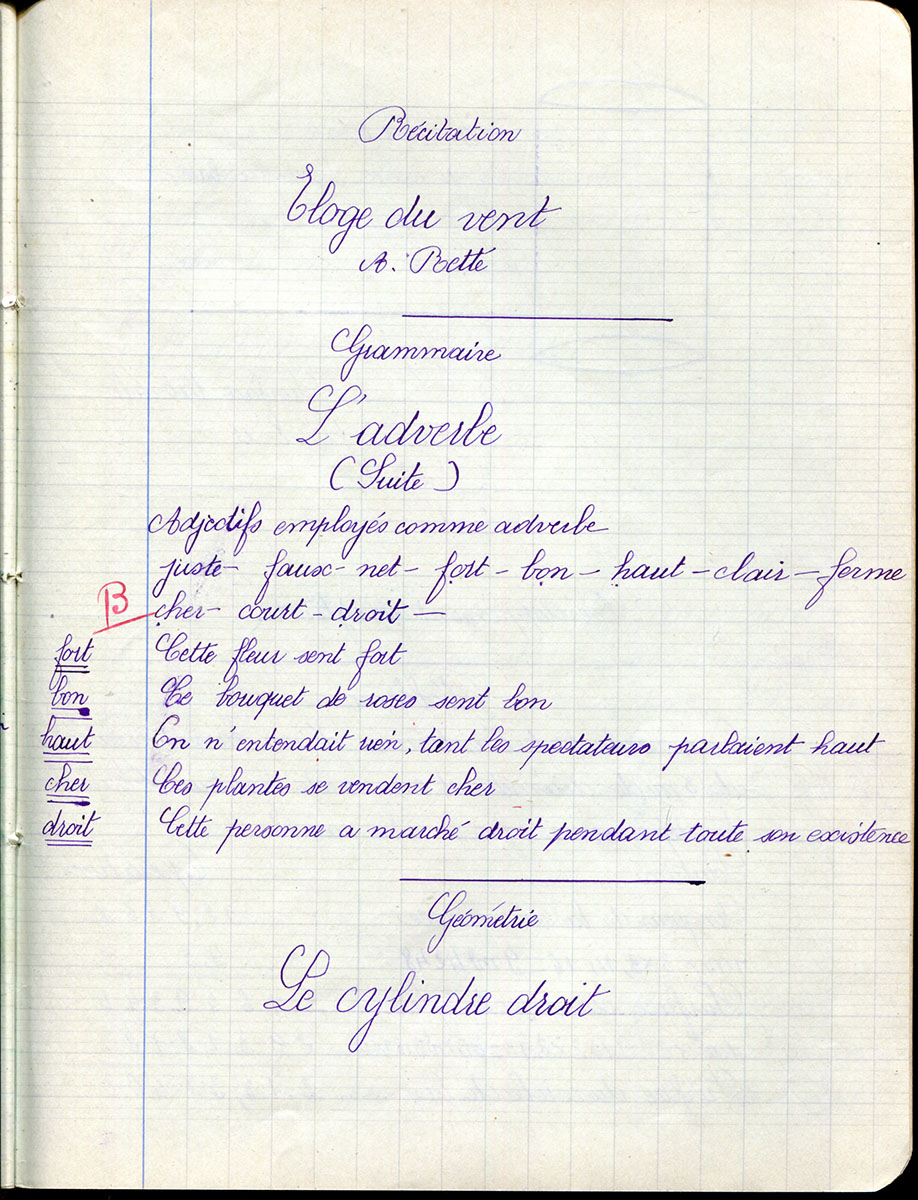 Récitation
Eloge du vent
A. Retté
Grammaire
L'adverbe
(Suite)
Adjectifs employés comme adverbe
juste - faux - net - fort - bon - haut - clair - ferme
B
cher - court - droit -
fort Cette fleur sent fort
bon Ce bouquet de roses sent bon
haut On n'entendait rien, tant les spectateurs parlaient haut
cher Ces plantes se vendent cher
droit Cette personne a marché droit pendant toute son existence
Géométrie
Le cylindre droit